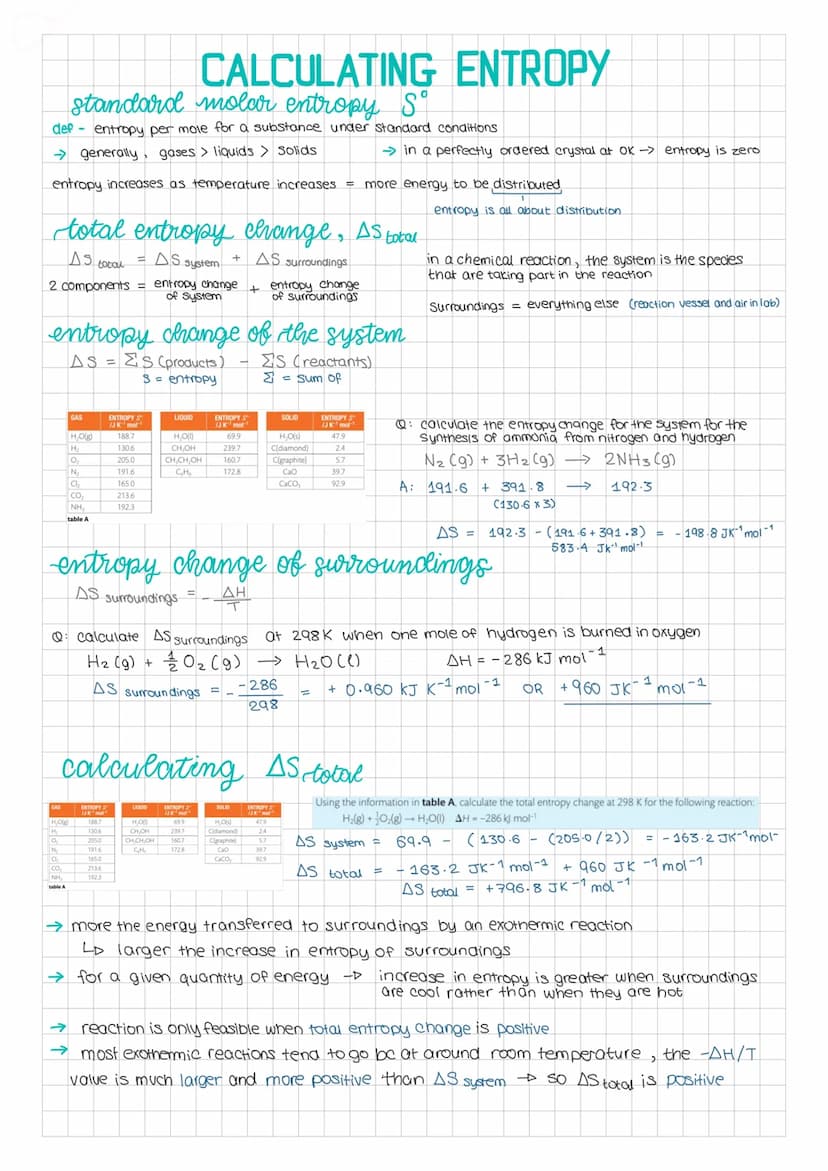 CALCULATING ENTROPY
standard molar entropy S°
def - entropy per mole for a substance under standard conditions
→ generally, gases > liquids > solids → in a perfectly ordered crystal at 0K → entropy is zero
entropy increases as temperature increases = more energy to be distributed
entropy is all about distribution
total entropy change, ΔS total
ΔS total = ΔS system + ΔS surroundings
2 components = entropy change of system + entropy change of surroundings
in a chemical reaction, the system is the species
that are taking part in the reaction
surroundings = everything else (reaction vessel and air in lab)
entropy change of the system
ΔS = ΣS (products) - ΣS (reactants)
S = entropy Σ = sum of
GAS ENTROPY S° (J K⁻¹ mol⁻¹)
H₂O(g) 188.7
H₂ 130.6
O₂ 205.0
N₂ 191.6
Cl₂ 165.0
CO₂ 213.6
NH₃ 192.3
table A
LIQUID ENTROPY S° (J K⁻¹ mol⁻¹)
H₂O(l) 69.9
CH₃OH 239.7
CH₃CH₂OH 160.7
C₆H₆ 172.8
SOLID ENTROPY S° (J K⁻¹ mol⁻¹)
H₂O(s) 47.9
C(diamond) 2.4
C(graphite) 5.7
CaO 39.7
CaCO₃ 92.9
Q: calculate the entropy change for the system for the
synthesis of ammonia from nitrogen and hydrogen
N₂(g) + 3H₂(g) → 2NH₃(g)
A: 191.6 + 391.8 → 192.3
(130.6 x 3)
ΔS = 192.3 - (191.6 + 391.8) = - 198.8 JK⁻¹mol⁻¹
583.4 JK⁻¹mol⁻¹
entropy change of surroundings
ΔS surroundings = - ΔH/T
Q: calculate ΔS surroundings at 298K when one mole of hydrogen is burned in oxygen
H₂(g) + ½O₂(g) → H₂O(l) ΔH = - 286 kJ mol⁻¹
ΔS surroundings = - -286/298 = + 0.960 kJ K⁻¹mol⁻¹ OR +960 JK⁻¹mol⁻¹
calculating ΔS total
GAS ENTROPY S° (J K⁻¹ mol⁻¹)
H₂O(g) 188.7
H₂ 130.6
O₂ 205.0
N₂ 191.6
Cl₂ 165.0
CO₂ 213.6
NH₃ 192.3
table A
LIQUID ENTROPY S° (J K⁻¹ mol⁻¹)
H₂O(l) 69.9
CH₃OH 239.7
CH₃CH₂OH 160.7
C₆H₆ 172.8
SOLID ENTROPY S° (J K⁻¹ mol⁻¹)
H₂O(s) 47.9
C(diamond) 2.4
C(graphite) 5.7
CaO 39.7
CaCO₃ 92.9
Using the information in table A, calculate the total entropy change at 298 K for the following reaction:
H₂(g) + ½O₂(g) → H₂O(l) ΔH = −286 kJ mol⁻¹
ΔS system = 69.9 - (130.6 - (205.0/2)) = -163.2 JK⁻¹mol⁻
ΔS total = - 163.2 JK⁻¹mol⁻¹ + 960 JK⁻¹mol⁻¹
ΔS total = +796.8 JK⁻¹mol⁻¹
→ more the energy transferred to surroundings by an exothermic reaction
↳ larger the increase in entropy of surroundings
→ for a given quantity of energy → increase in entropy is greater when surroundings
are cool rather than when they are hot
→ reaction is only feasible when total entropy change is positive
→ most exothermic reactions tend to go bc at around room temperature, the -ΔH/T
value is much larger and more positive than ΔS system → so ΔS total is positive